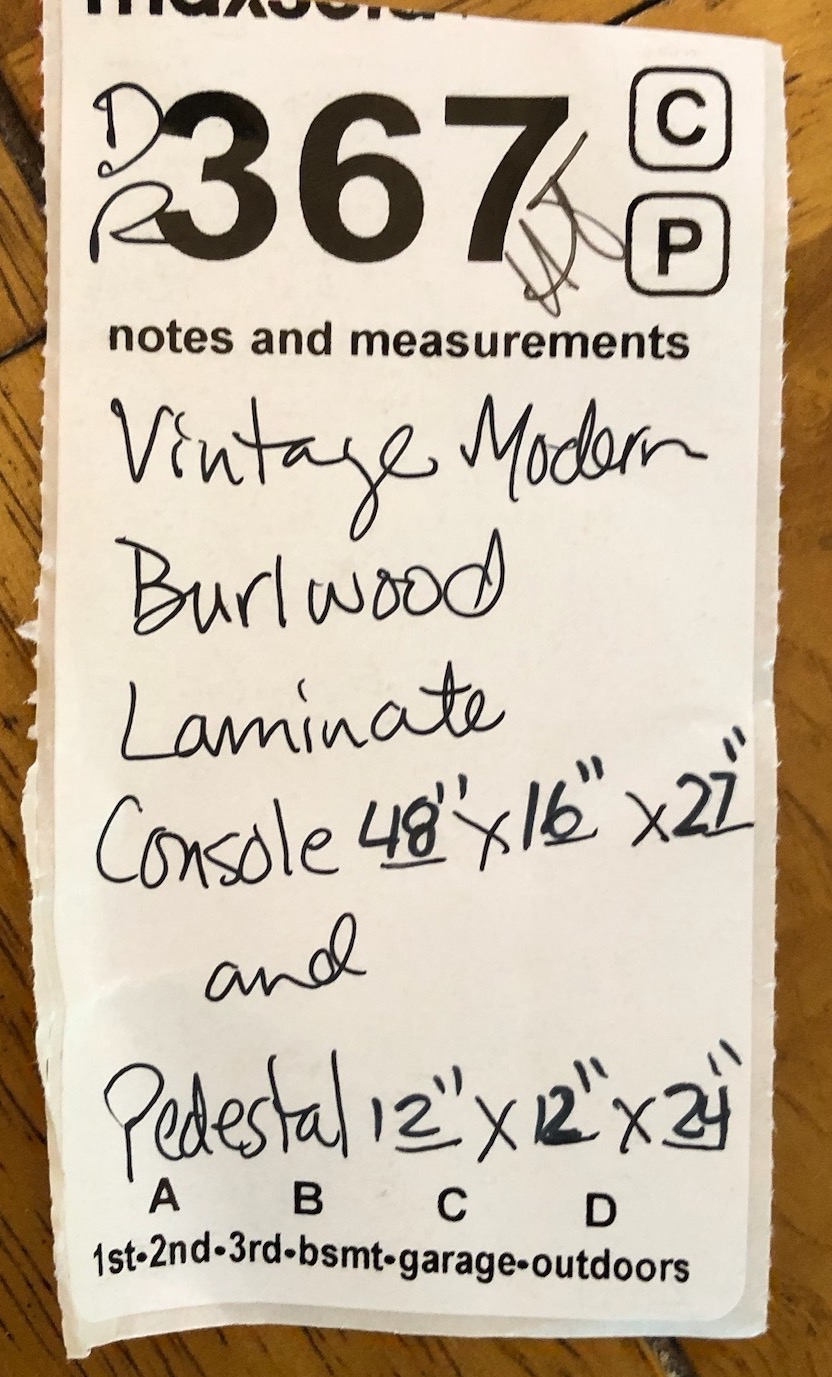 D 367 C
R P
notes and measurements
Vintage Modern
Burlwood
Laminate
Console 48" x 16" x 27"
and
Pedestal 12" x 12" x 24"
A B C D
1st•2nd•3rd•bsmt•garage•outdoors